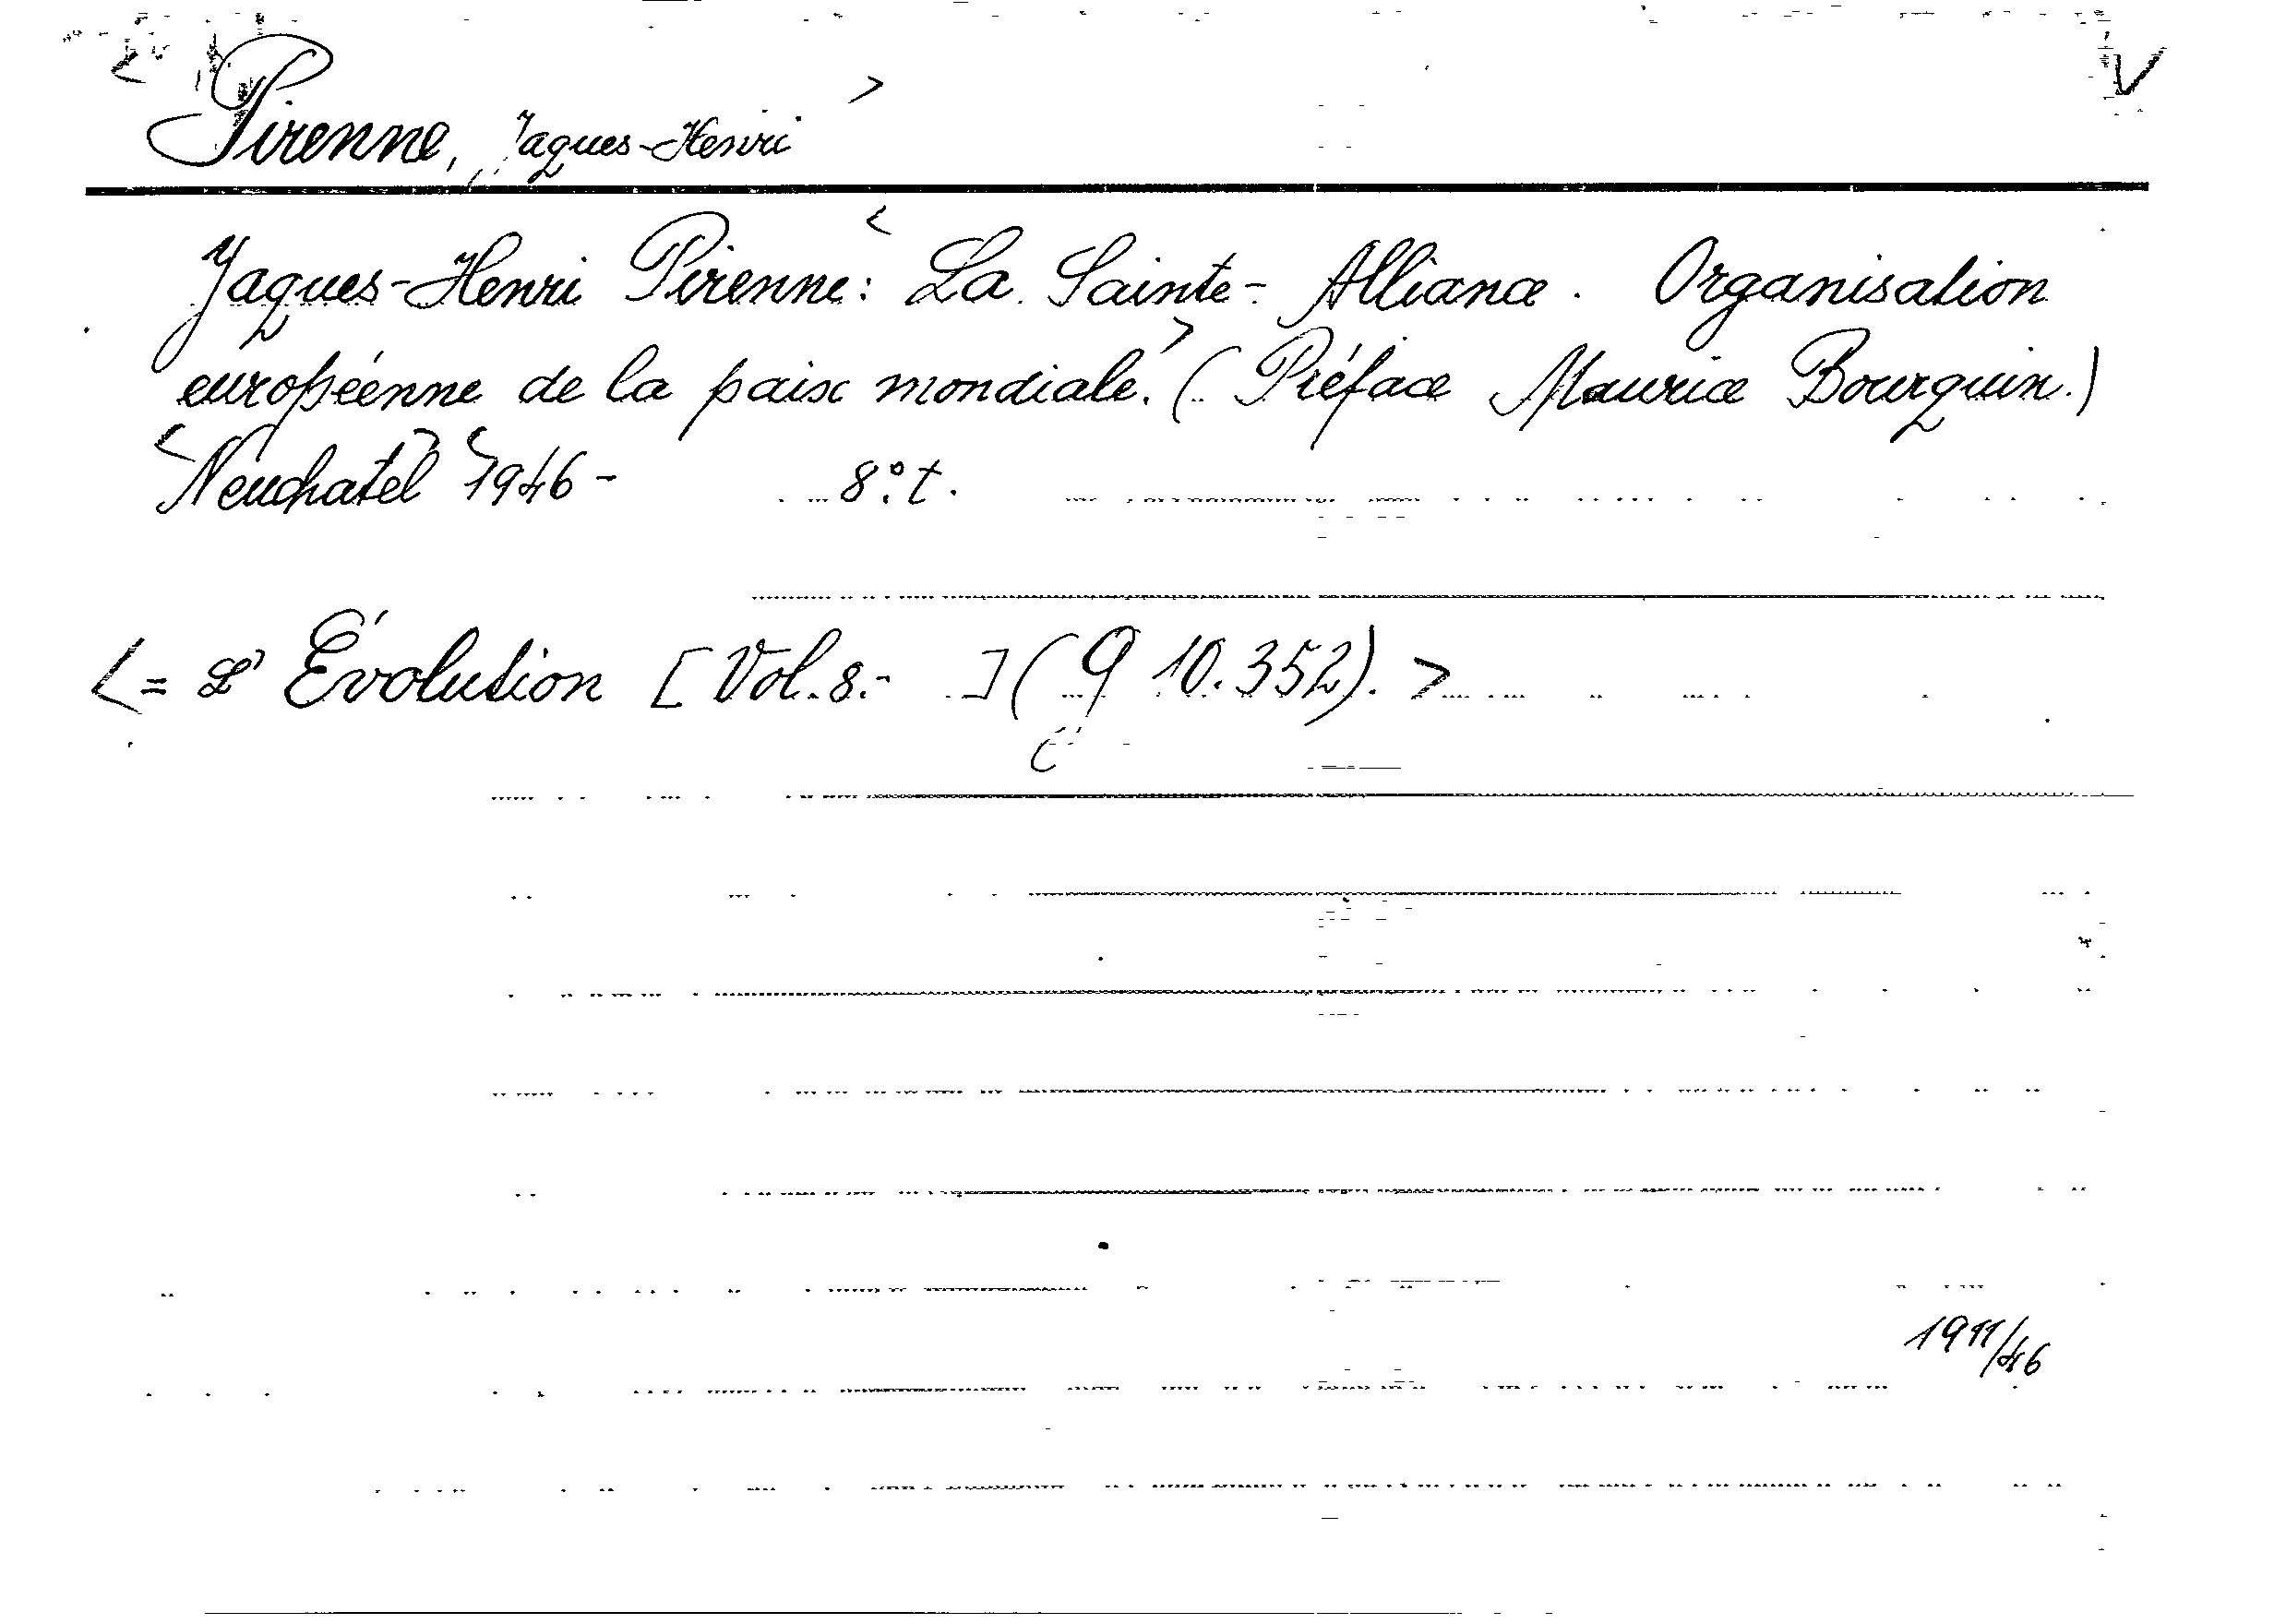 < Pirenne, Jaques-Henri > V
Jaques-Henri Pirenne: < La Sainte-Alliance. Organisation
européenne de la paix mondiale. > (Préface Maurice Bourquin.)
< Neuchatel > < 1946 - 8° t.
< = L' Évolution [Vol. 8.- ] (9 10.352). >
1911/46